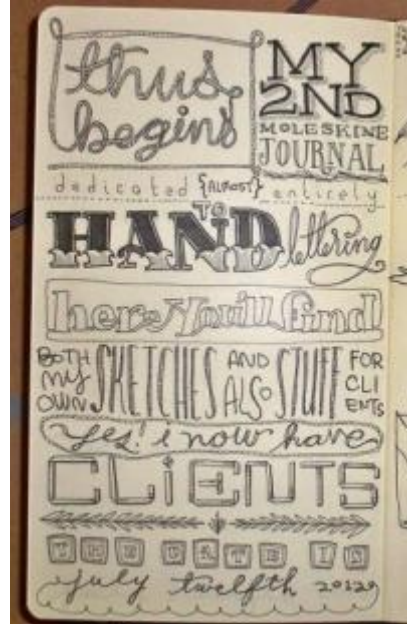 thus begins
MY 2ND MOLESKINE JOURNAL
dedicated {ALMOST} entirely
TO
HAND lettering
here you'll find
BOTH MY OWN SKETCHES AND ALSO STUFF FOR CLIENTS
yes! i now have
CLiENTS
THE DATE IS
july twelfth 2012